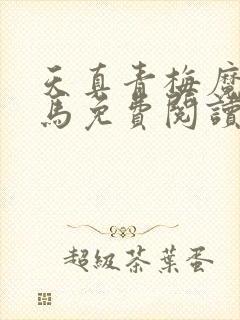 天真青梅魔
馬免費閱讀
超級茶葉蛋